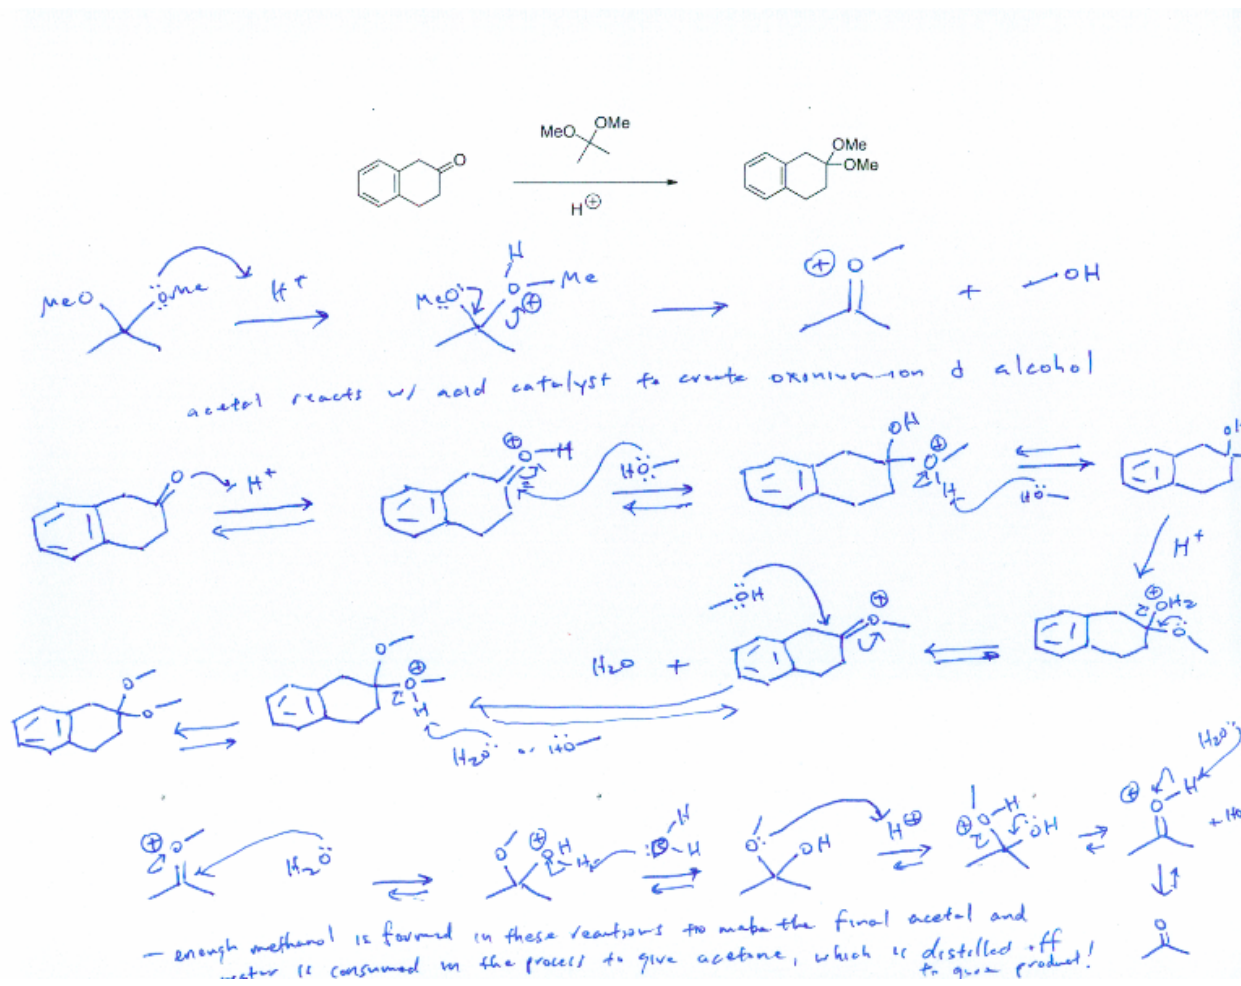 MeO OMe
O
H⊕
OMe
OMe
MeO ÖMe H+
MeÖ H O⊕ — Me
⊕ O + OH
acetal reacts w/ acid catalyst to create oxonium ion & alcohol
O H+
⊕ O—H HÖ
OH O⊕ H HÖ
H+
⊕ OH2 O
ÖH
O⊕
H2O +
O O
O O⊕ H
H2Ö or HÖ
⊕ O H2Ö
O ⊕ O H H
Ö H H
O OH H⊕
⊕ O—H ÖH
⊕ O—H H2Ö
+ HO
O
— enough methanol is formed in these reactions to make the final acetal and
water is consumed in the process to give acetone, which is distilled off
to give product!